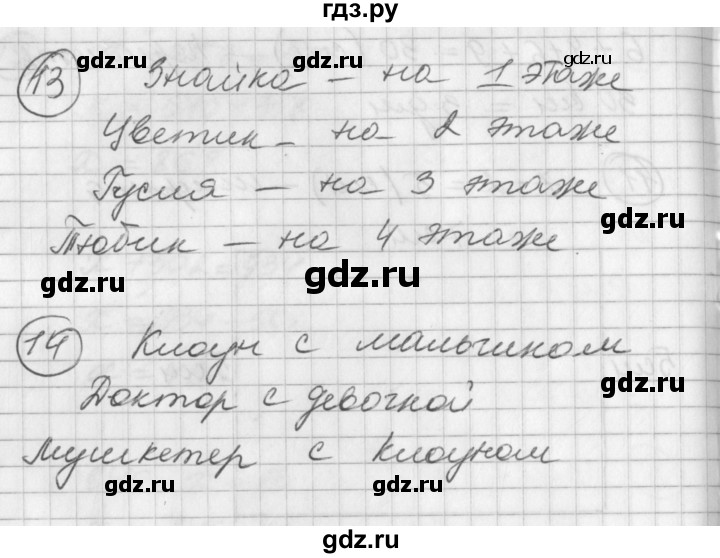 гдз.ру
gdz.ru
gdz.ru
gdz.ru
13 Знайка – на 1 этаже
Цветик – на 2 этаже
gdz.ru
Гусля – на 3 этаже
gdz.ru
Тюбик – на 4 этаже
gdz.ru
gdz.ru
gdz.ru
gdz.ru
14 Клоун с мальчиком
Доктор с девочкой
Мушкетер с Клоуном
gdz.ru
gdz.ru
gdz.ru